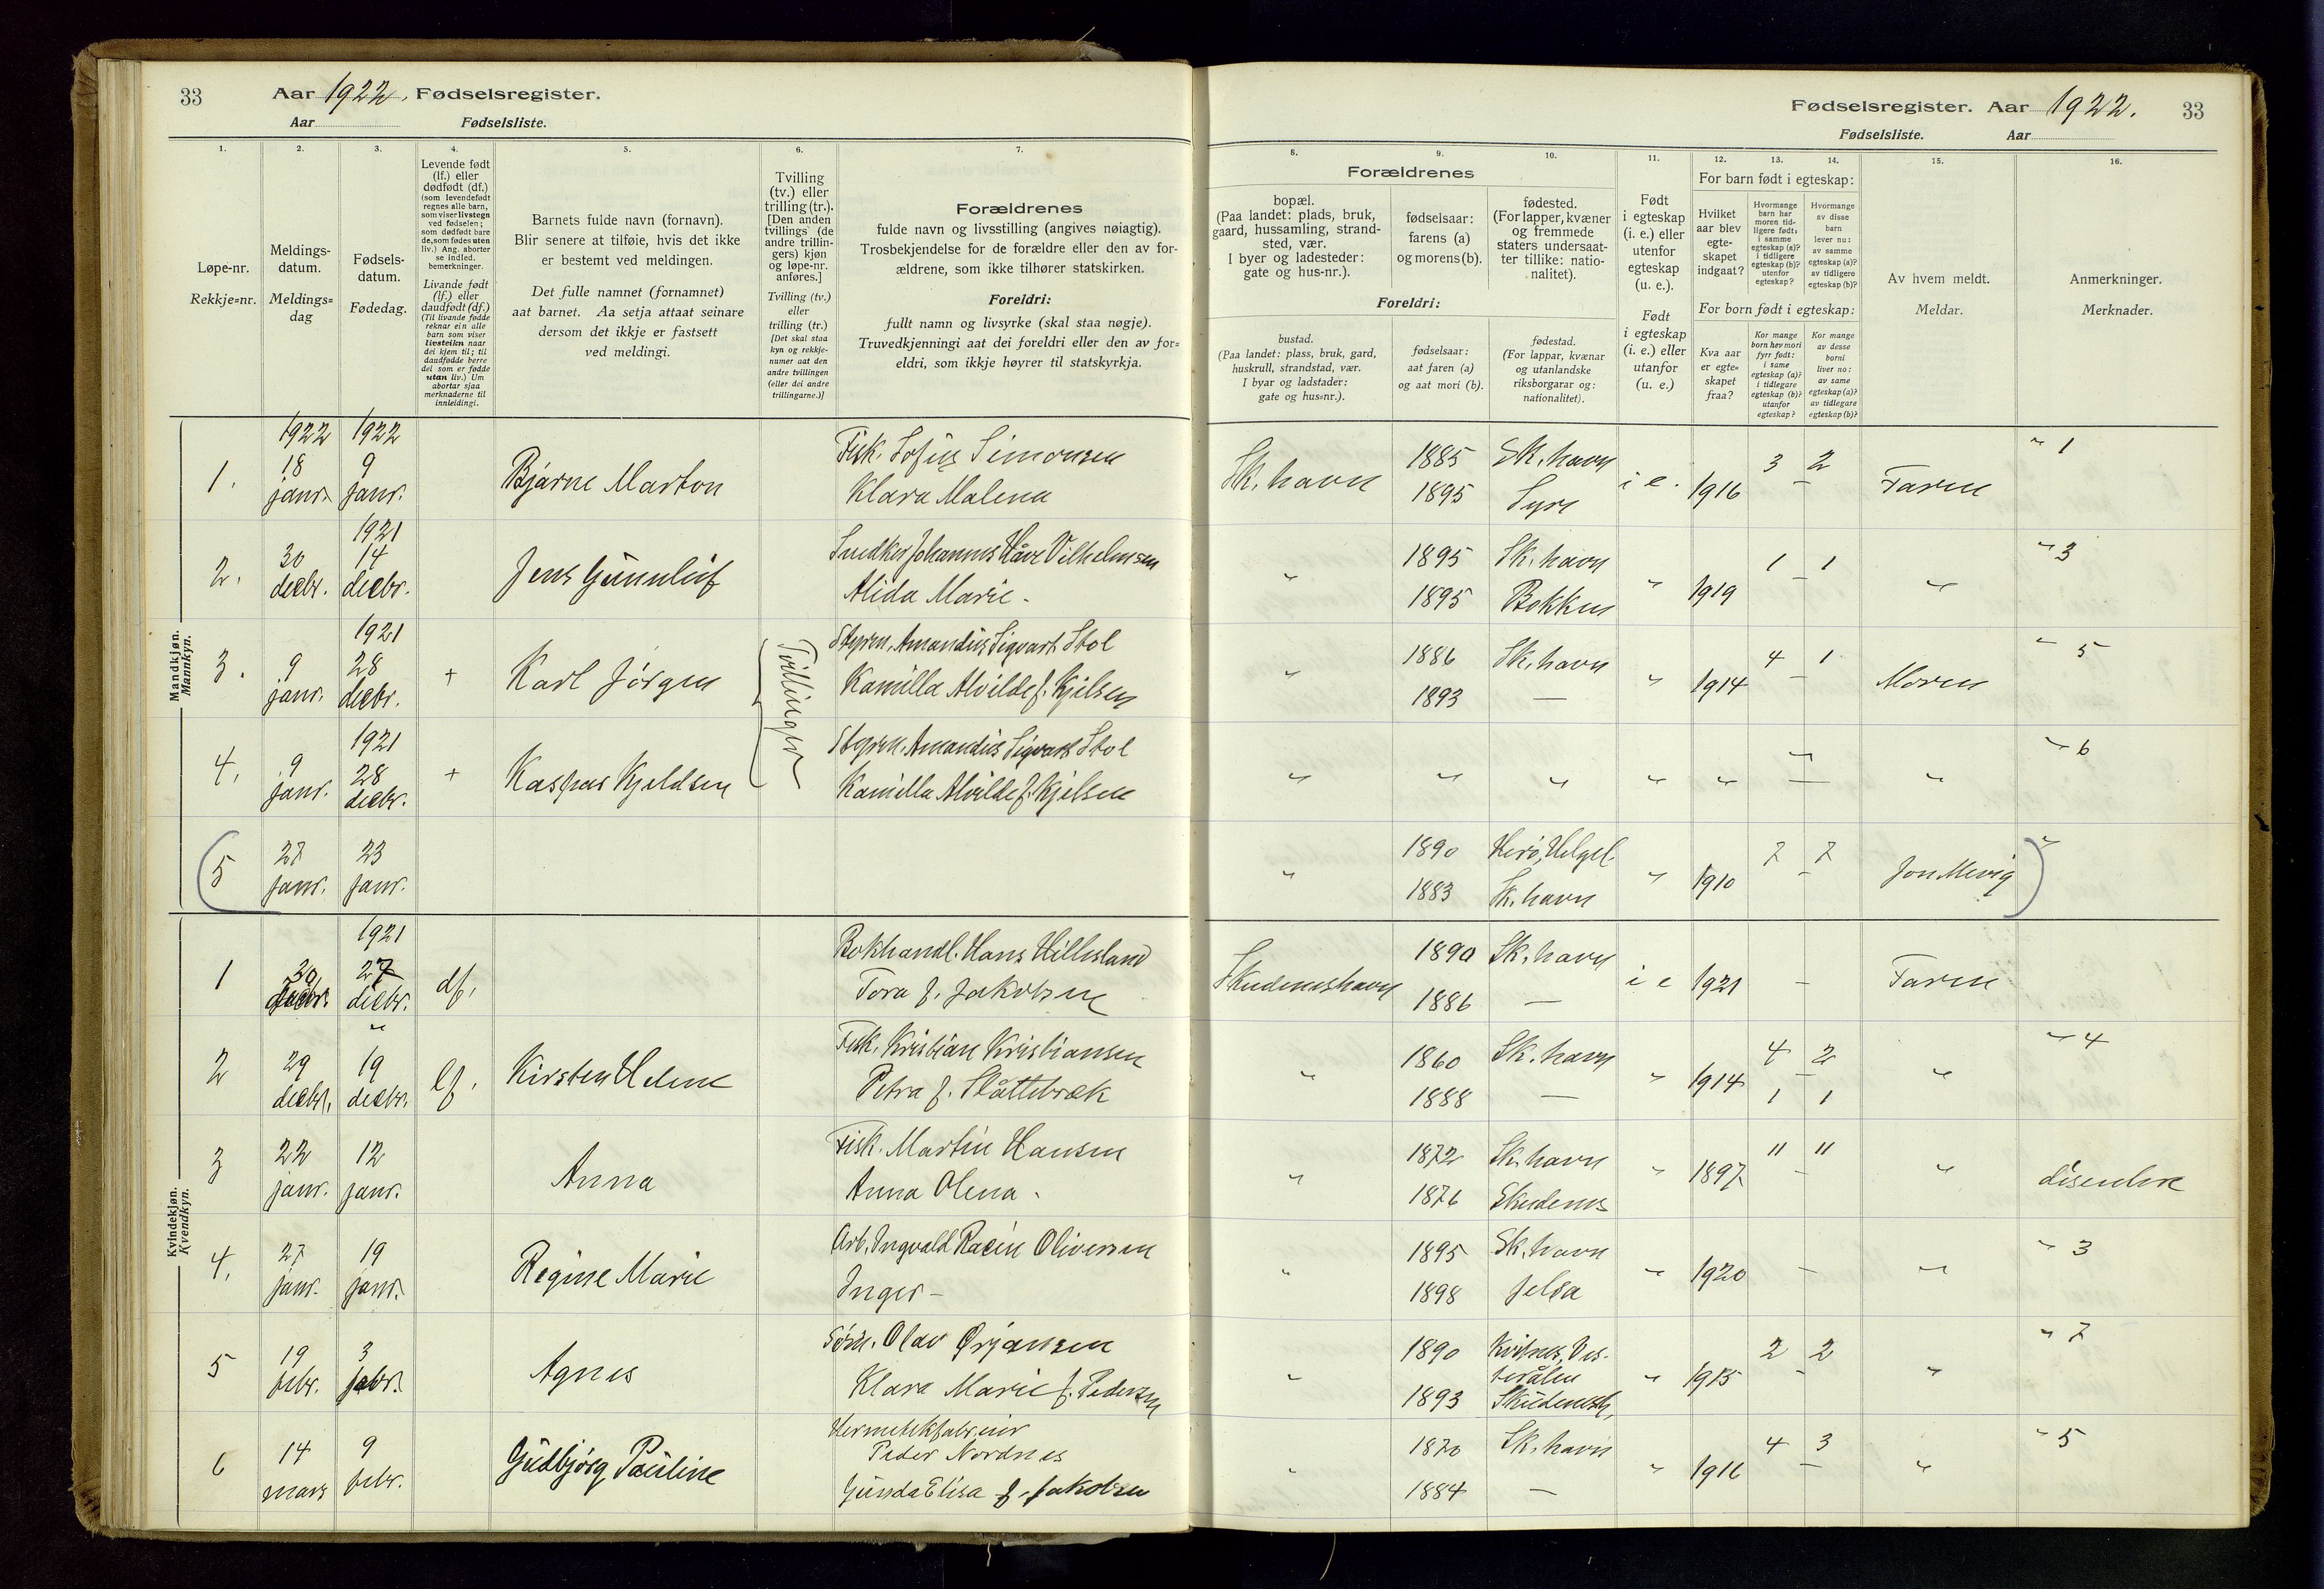 33 Aar 1922. Fødselsregister.
Aar Fødselsliste.
1. 2. 3. 4. 5. 6. 7.
Løpe-nr.
Rekkje=nr.
Meldings-
datum.
Meldings=
dag
Fødsels-
datum.
Fødedag.
Levende født
(lf.) eller
dødfødt (df.)
(som levendefødt
regnes alle barn,
som viser livstegn
ved fødselen;
som dødfødt bare
de, som fødes uten
liv.) Ang. aborter
se indled.
bemerkninger.
Livande født
(lf.) eller
daudfødt (df.)
(Til livande fødde
reknar ein alle
barn som viser
livsteikn naar
dei kjem til; til
daudfødde berre
dei som er fødde
utan liv.) Um
abortar sjaa
merknaderne til
innleidingi.
Barnets fulde navn (fornavn).
Blir senere at tilføie, hvis det ikke
er bestemt ved meldingen.
Det fulle namnet (fornamnet)
aat barnet. Aa setja attaat seinare
dersom det ikkje er fastsett
ved meldingi.
Tvilling
(tv.) eller
trilling (tr.).
[Den anden
tvillings (de
andre trillin-
gers) kjøn
og løpe-nr.
anføres.]
Tvilling (tv.)
eller
trilling (tr.)
[Det skal staa
kyn og rekkje-
numer aat den
andre tvillingen
(eller dei andre
trillingarne.)]
Forældrenes
fulde navn og livsstilling (angives nøiagtig).
Trosbekjendelse for de forældre eller den av for-
ældrene, som ikke tilhører statskirken.
Foreldri:
fullt namn og livsyrke (skal staa nøgje).
Truvedkjenningi aat dei foreldri eller den av for=
eldri, som ikkje høyrer til statskyrkja.
Mandkjøn.
Mannkyn.
1922 1922
1. 18 janr. 9 janr. Bjarne Marton Fisk. Sofus Simonsen
Klara Malena
1921
2. 30 decbr. 14 decbr. Jens Gunnleif Snedker Johannes Håve Vilhelmsen
Alida Marie -
1921
3. 9 janr. 28 decbr. + Karl Jørgen Tvillinger Styrm. Amandus Sigvart Stol
Kamilla Alvilde f. Kjelsen
1921
4. 9 janr. 28 decbr. + Kaspar Kjeldsen Styrm. Amandus Sigvart Stol
Kamilla Alvilde f. Kjelsen
(5 27 janr. 23 janr.
Kvindekjøn.
Kvendkyn.
1921
1 30 decbr. 27 decbr. df. Bokhandl. Hans Hillesland
Tora f. Jakobsen
"
2 29 decbr. 19 decbr. lf. Kirsten Helene Fisk. Kristian Kristiansen
Petra f. Slåttebræk
3 22 janr. 12 janr. Anna Fisk. Martin Hansen
Anna Olena -
4. 27 janr. 19 janr. Regine Marie Arb. Ingvald Racin Oliversen
Inger -
5 19 febr. 3 febr. Agnes Olav Ørjansen
Klara Marie f. Pedersen
6 14 mars 9 febr. Gudbjørg Pauline Hermetikfabr.eier
Peder Nordnes
Gunda Elisa f. Jakobsen
Fødselsregister. Aar 1922. 33
Fødselsliste. Aar
8. 9. 10. 11. 12. 13. 14. 15. 16.
Forældrenes
bopæl.
(Paa landet: plads, bruk,
gaard, hussamling, strand-
sted, vær.
I byer og ladesteder:
gate og hus-nr.).
fødselsaar:
farens (a)
og morens (b).
fødested.
(For lapper, kvæner
og fremmede
staters undersaat-
ter tillike: natio-
nalitet).
Foreldri:
bustad.
(Paa landet: plass, bruk, gard,
huskrull, strandstad, vær.
I byar og ladstader:
gate og hus=nr.).
fødselsaar:
aat faren (a)
og aat mori (b).
fødestad.
(For lappar, kvænar
og utanlandske
riksborgarar og:
nationalitet).
Født
i egteskap
(i. e.) eller
utenfor
egteskap
(u. e.).
Født
i egteskap
(i. e.) eller
utanfor
(u. e.)
For barn født i egteskap:
Hvilket
aar blev
egte-
skapet
indgaat?
Hvormange
barn har
moren tid-
ligere født:
i samme
egteskap (a)?
i tidligere
egteskap (b)?
utenfor
egteskap?
Hvormange
av disse
barn
lever nu:
av samme
egteskap (a)?
av tidligere
egteskap (b)?
For born født i egteskap:
Kva aar
er egte=
skapet
fraa?
Kor mange
born hev mori
fyrr født:
i same
egteskap (a)?
i tidlegare
egteskap (b)?
utanfor
egteskap?
Kor mange
av desse
borni
liver no:
av same
egteskap (a)?
av tidlegare
egteskap (b)?
Av hvem meldt.
Meldar.
Anmerkninger.
Merknader.
Sk.havn 1885 Sk.havn i e. 1916 3 2 Faren " 1
1895 Syre -
" 1895 Sk.havn " 1919 1 - 1 " " 3
1895 Bokken
" 1886 Sk.havn " 1914 4 1 Moren " 5
1893 — -
" " " " " " " " 6
" 1890 Herø, Helgel. " 1910 7 7 Jon Mevig ) "
1883 Sk.havn -
Skudeneshavn 1890 Sk.havn i e 1921 - Faren
1886 —
" 1860 Sk.havn " 1914 4 2 " " 4
1888 — 1 1
" 1872 Sk.havn " 1897 11 11 " disentere
1876 Skudenes -
" 1895 Sk.havn " 1920 - " " 3
1898 Jelsa
" 1890 Kvitnes, Ves-
terålen " 1915 2 2 " " 7
1893 Skudenesh.
" 1870 Sk.havn " 1916 4 3 " " 5
1884 — -